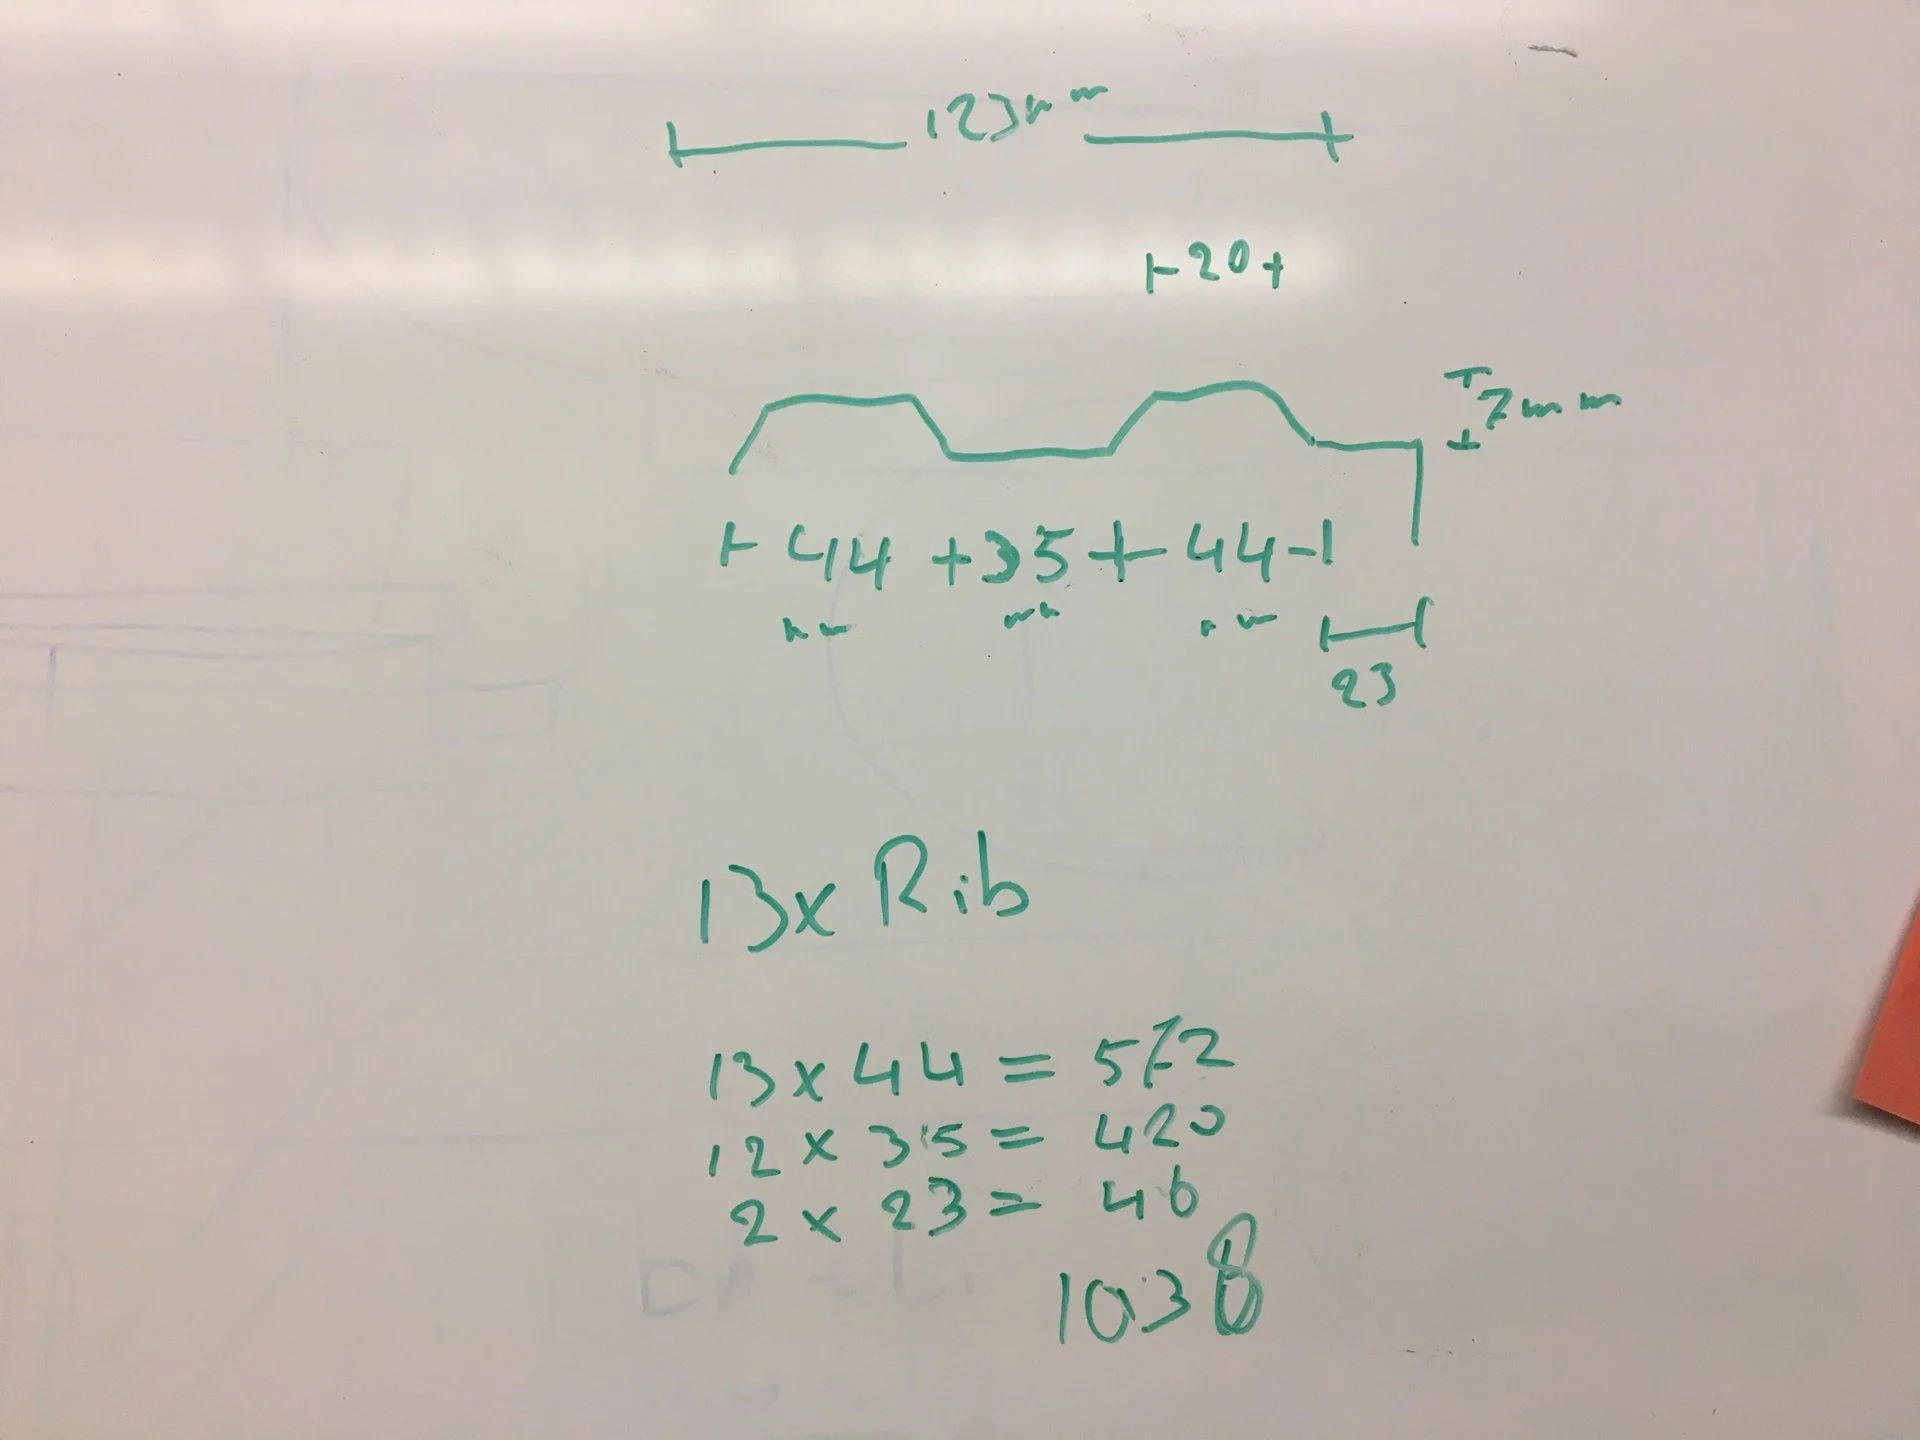 123mm
20
7mm
44 + 35 + 44
mm mm mm
23
13x Rib
13 x 44 = 572
12 x 35 = 420
2 x 23 = 46
1038